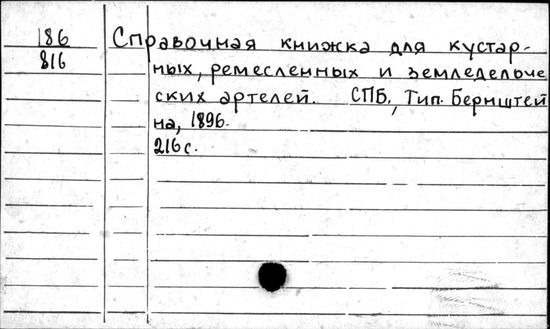 186
816
Справочная книжка для кустар-
ных, ремесленных и земледельче
ских артелей. СПБ., Тип. Бернштей
на, 1896.
216 с.